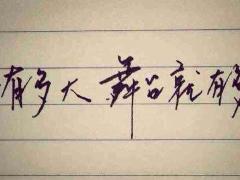 有多大舞台就有多